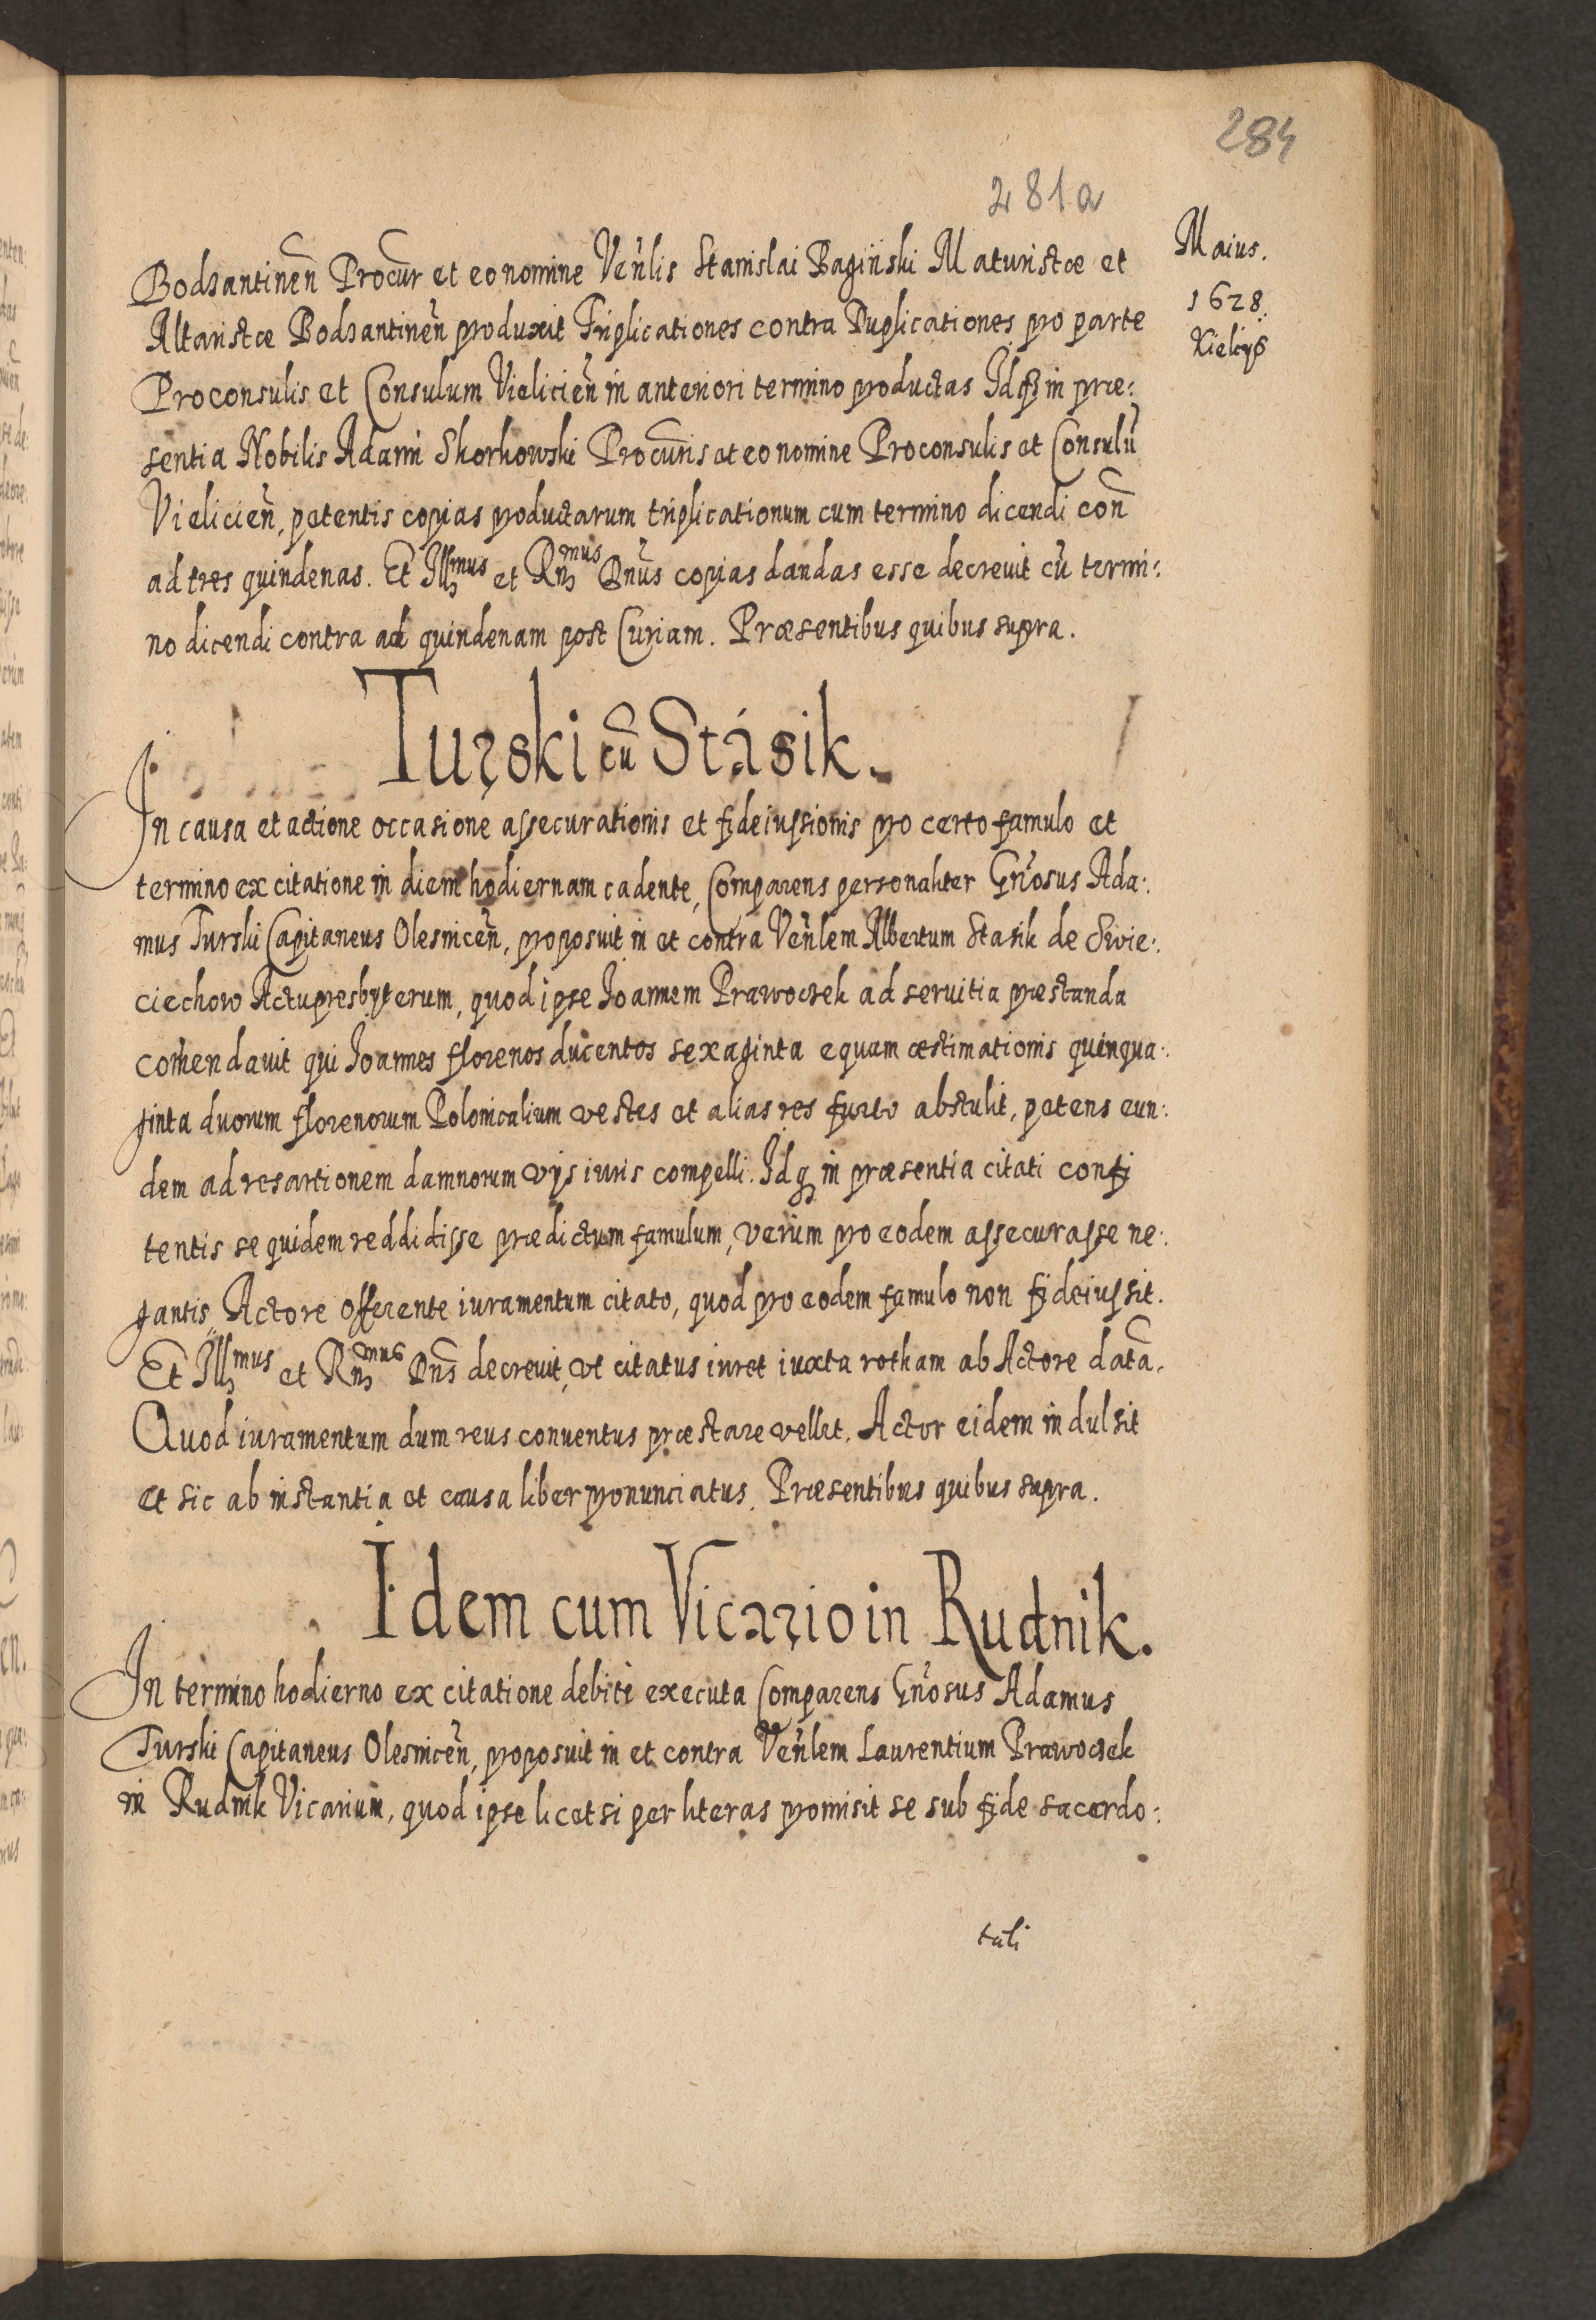 284
281a
Maius.
1628.
Kielcijs
Bodzantinen̄ Procūr et eo nomine Ven̄lis Stanislai Bagiński Maturistæ et
Altaristæ Bodzantinen̄ produxit Triplicationes contra Duplicationes pro parte
Proconsulis et Consulum Vielicien̄ in anteriori termino productas Idq́ꝫ in præ:
sentia Nobilis Adami Skorkowski Procūris et eo nomine Proconsulis et Consulū
Vielicien̄, petentis copias productarum triplicationum cum termino dicendi con̄
ad tres quindenas. Et Illꝫmus et Rnꝫmus Dnūs copias dandas esse decrevit cū termi:
no dicendi contra ad quindenam post Curiam. Præsentibus quibus supra.
Turski cū Stásik.
In causa et actione occasione assecurationis et fideiussionis pro certo famulo et
termino ex citatione in diem hodiernam cadente, Comparens personaliter Gn̄osus Ada:
mus Turski Capitaneus Olesnicen̄, proposuit in et contra Ven̄lem Albertum Stasik de Swie:
ciechow Actupresbyterum, quod ipse Joannem Prawoczek ad seruitia præstanda
com̄endavit qui Joannes florenos ducentos sexaginta equam æstimationis quinqua:
ginta duorum florenorum Polonicalium vestes et alias res furto abstulit, petens eun:
dem ad resartionem damnorum vijs iuris compelli. Idqꝫ in præsentia citati confi
tentis se quidem reddidisse prædictum famulum, verum pro eodem assecurasse ne:
gantis, Actore offerente iuramentum citato, quod pro eodem famulo non fideiussit.
Et Illꝫmus et Rnꝫmus Dn̄s decrevit, vt citatus iuret iuxta rotham ab Actore datā.
Quod iuramentum dum reus conuentus præstare vellet, Actor eidem indulsit
et sic ab instantia et causa liber pronunciatus. Præsentibus quibus supra.
Idem cum Vicario in Rudnik.
In termino hodierno ex citatione debitè executa Comparens Gn̄osus Adamus
Turski Capitaneus Olesnicen̄, proposuit in et contra Ven̄lem Laurentium Prawoczek
in Rudnik Vicarium, quod ipse licet si per literas promisit se sub fide sacerdo:
tali